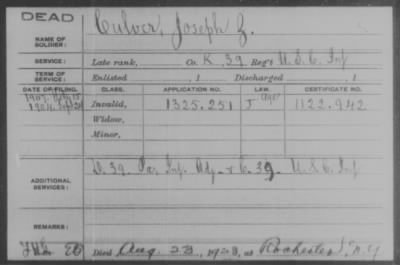 DEAD
NAME OF SOLDIER: Culver, Joseph Z.
SERVICE: Late rank, Co. K, 39 Reg't U.S.C. Inf
TERM OF SERVICE: Enlisted , 1 Discharged , 1
DATE OF FILING. CLASS. APPLICATION NO. LAW. CERTIFICATE NO.
1904 Sept Invalid, 1325.251 J 1122.942
Widow,
Minor,
ADDITIONAL SERVICES: D. 39. Inf. & 39. U.S.C. Inf
REMARKS:
Died Aug. 23, 1923, at Rochester, N.Y.